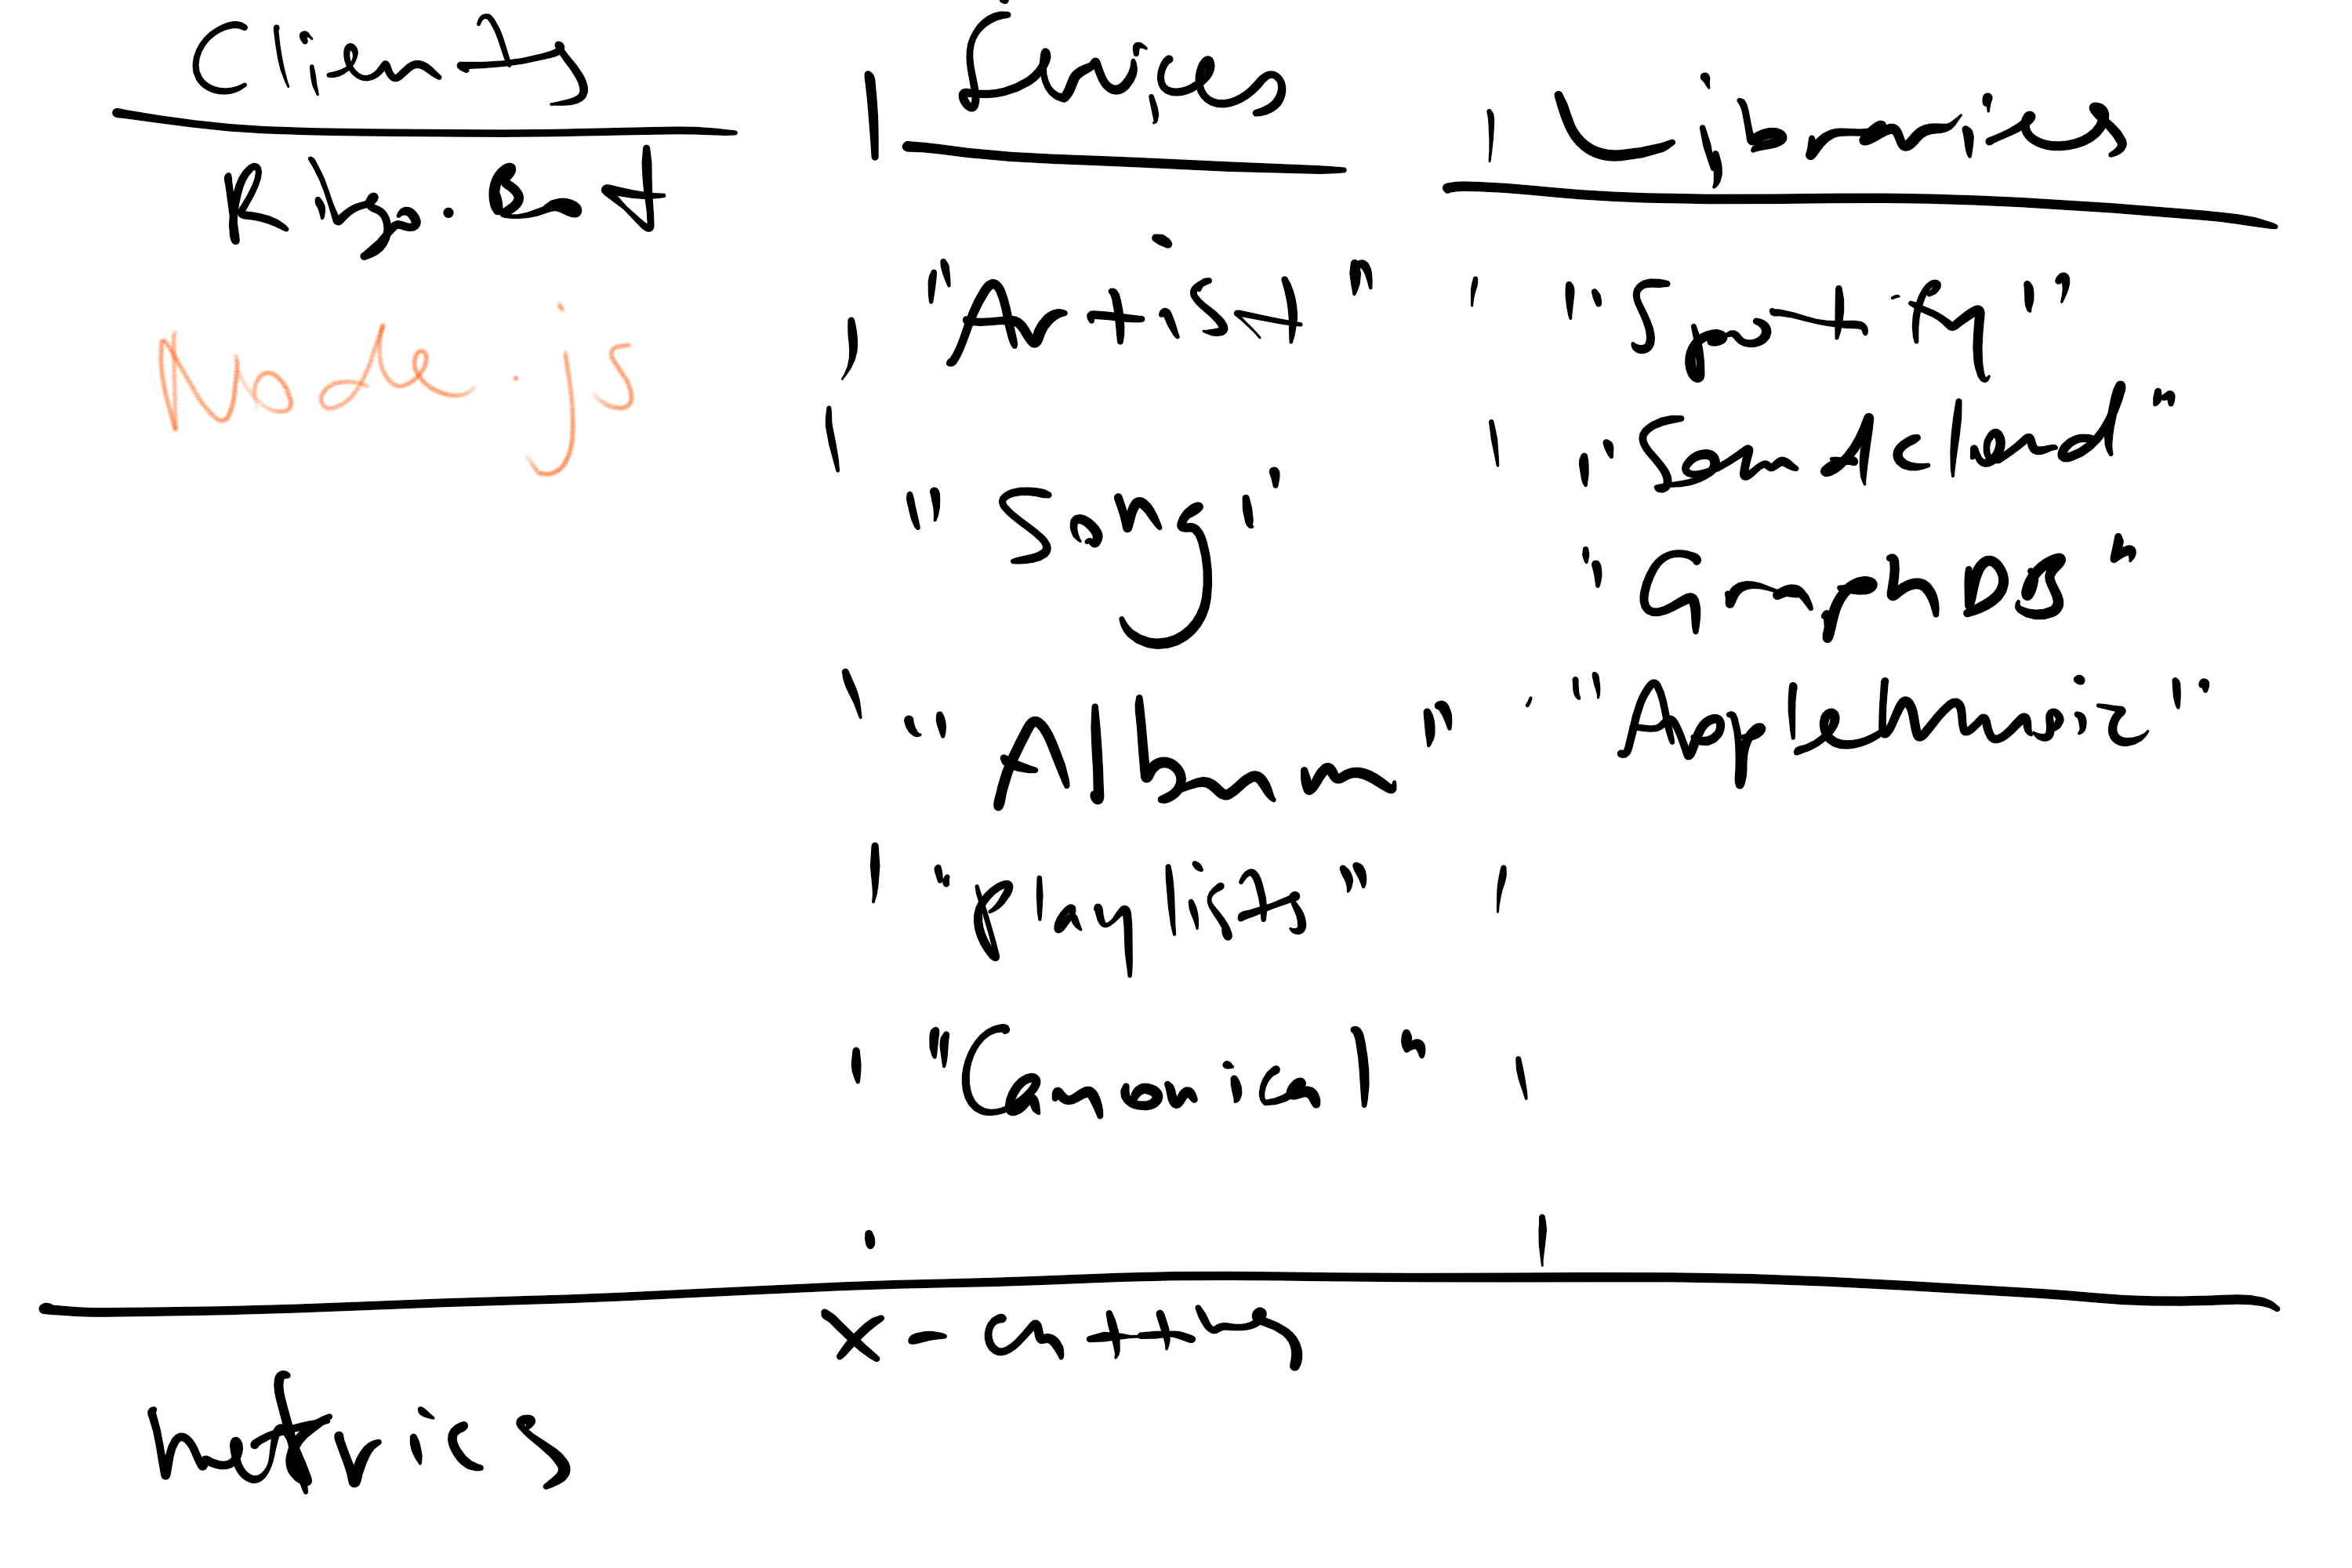 Clients
Node.js
Services
"Artist"
"Song"
"Album"
"Playlists"
"Canonical"
Libraries
"Spotify"
"Soundcloud"
"GraphDB"
"AppleMusic"
metrics